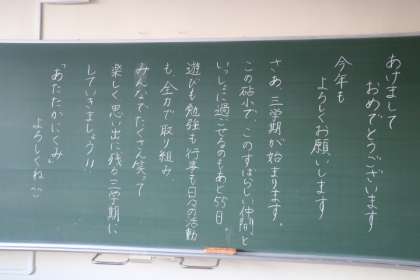 あけまして
おめでとうございます
今年も
よろしくお願いします
さあ、三学期が始まります。
この砧小で、このすばらしい仲間と
いっしょに過ごせるのもあと55日。
遊びも勉強も行事も日々の活動
も、全力で取り組み、
みんなでたくさん笑って
楽しく思い出に残る三学期に
していきましょう!!
「あたたかにくみ
よろしくね